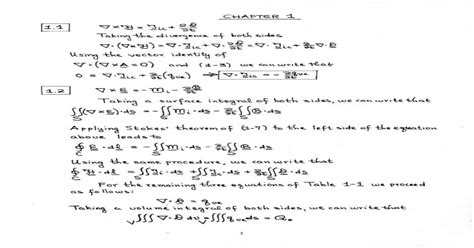 CHAPTER 1
1.1 ∇×H = J_ic + ∂D/∂t
Taking the divergence of both sides
∇·(∇×H) = ∇·J_ic + ∇·∂D/∂t = ∇·J_ic + ∂/∂t ∇·D
Using the vector identity of
∇·(∇×A=0) and (1-3) we can write that
0 = ∇·J_ic + ∂/∂t(q_ve) ⇒ ∇·J_ic = -∂q_ve/∂t
1.2 ∇×E = -M_i - ∂B/∂t
Taking a surface integral of both sides, we can write that
∬(∇×E)·ds = -∬M_i·ds - ∂/∂t∬B·ds
Applying Stokes' theorem of (1-7) to the left side of the equation
above leads to
∮E·dl = -∬M_i·ds - ∂/∂t∬B·ds
Using the same procedure, we can write that
∮H·dl = ∬J_i·ds + ∬J_c·ds + ∂/∂t∬D·ds
For the remaining three equations of Table 1-1 we proceed
as follows:
∇·D = q_ve
Taking a volume integral of both sides, we can write that
∭∇·D dv = ∭q_ve ds = Q_e